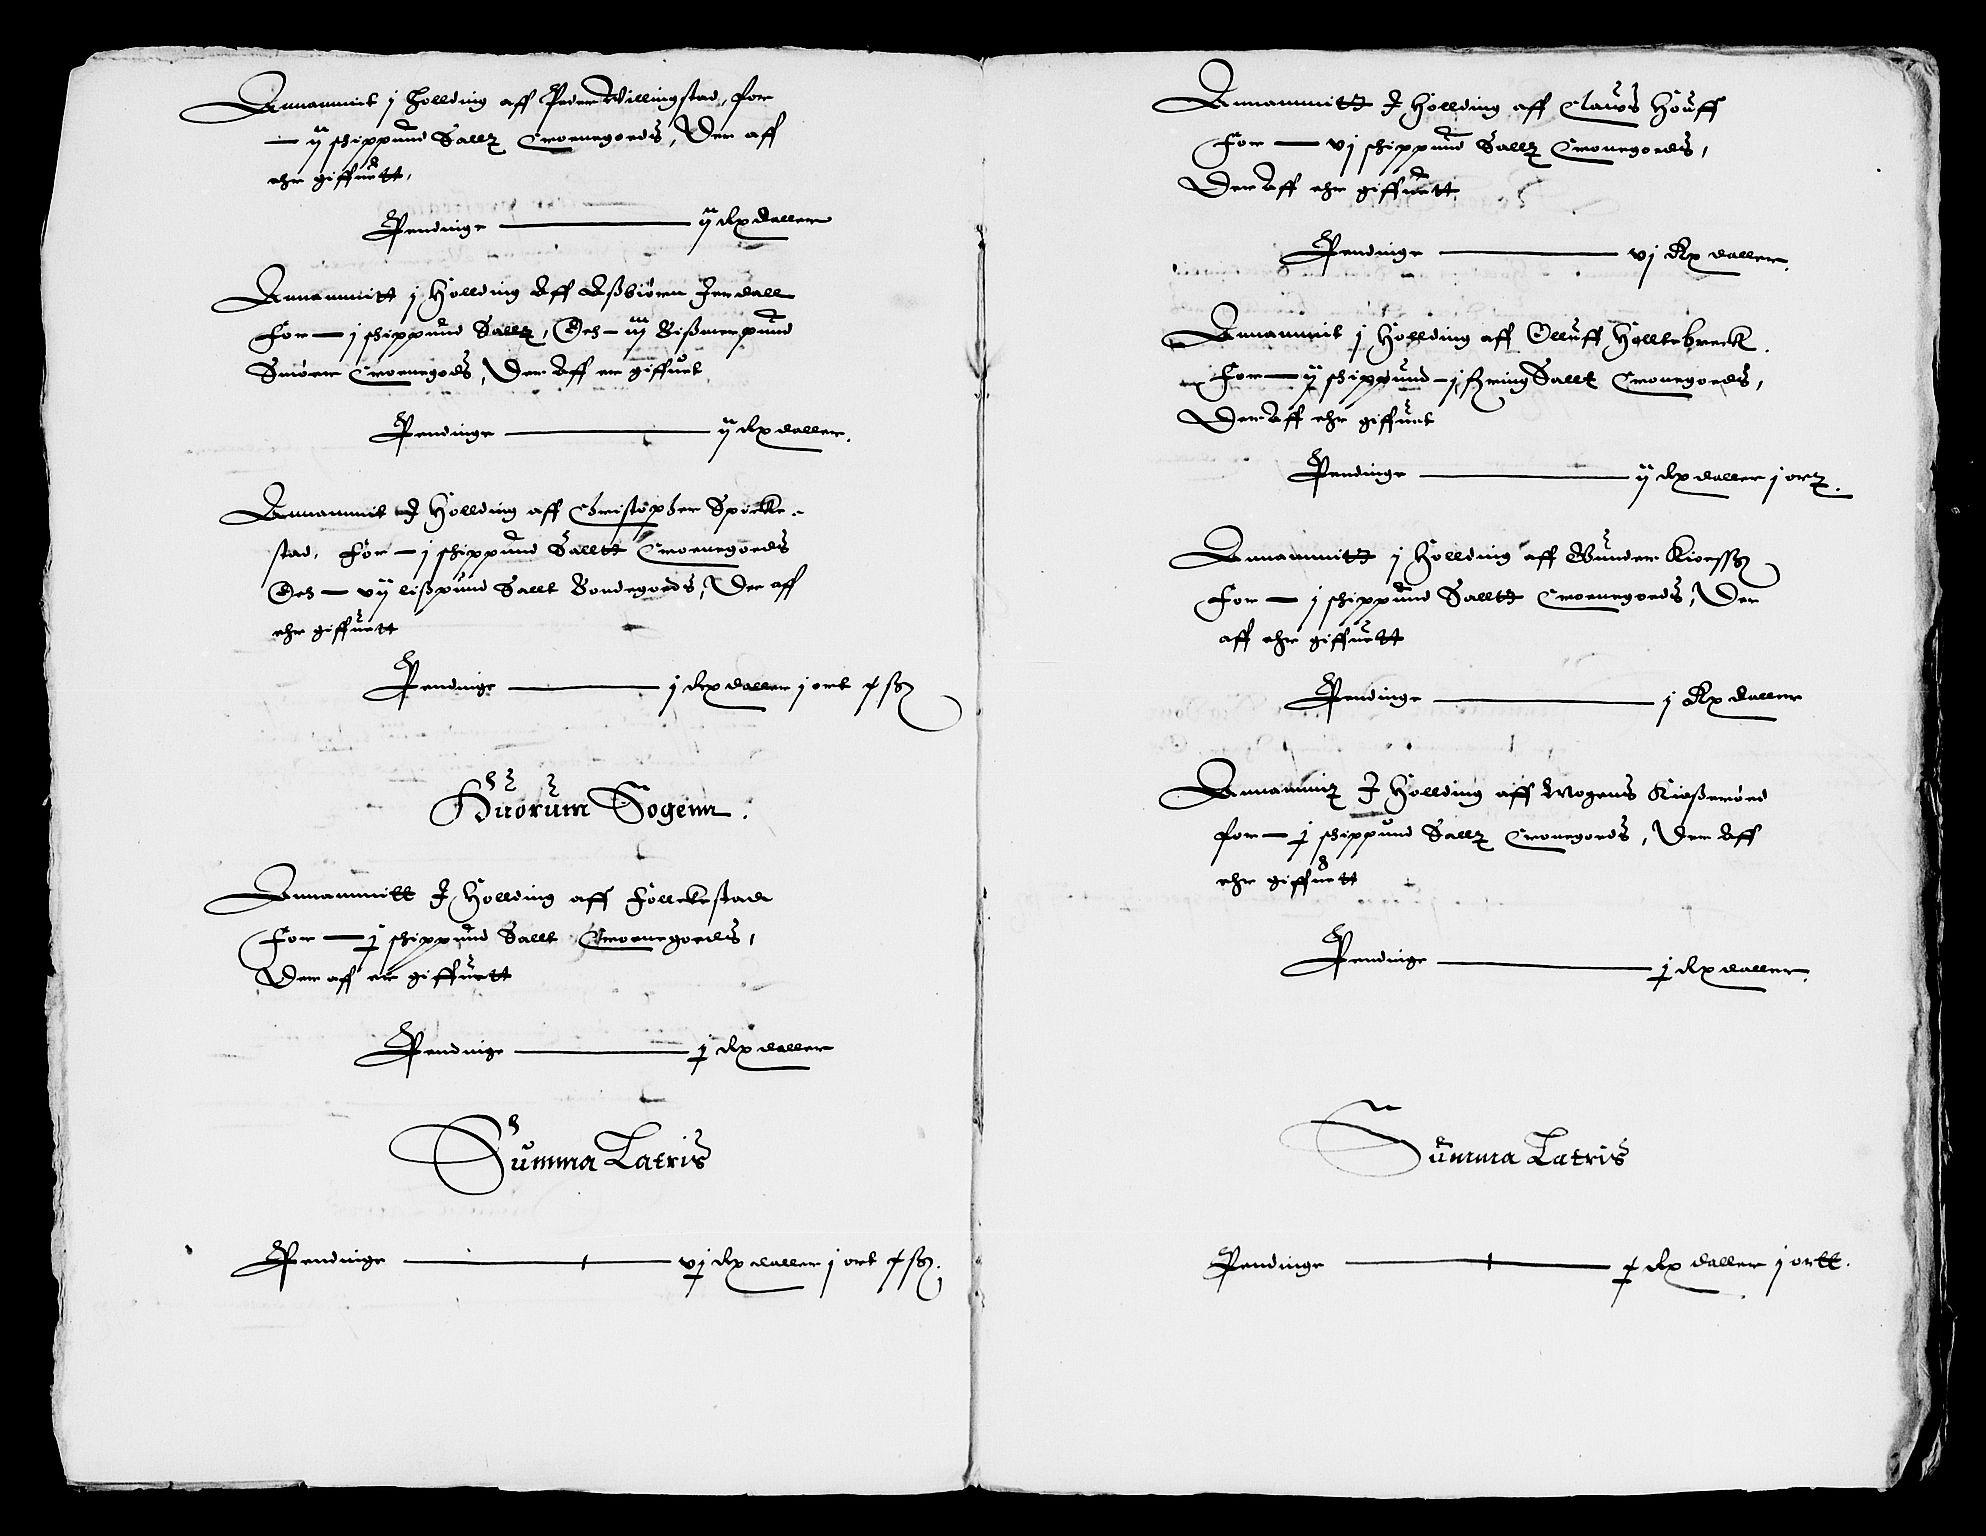 Annammit j Holding aff Peder Willingstad, for
— ij schippund Sallt Croenegoeds, Der aff
ehr giffuett,
Pendinge — ij Rx daller
Annammitt j Holding Aff Aßbiörn Jerdall
For — j schippund Sallt, Och — iij Bißmerpund
Smöer Croenegods, Der Aff er giffuet
Pendinge — ij Rx daller.
Annammit J Hollding aff Christopher Spicke-
stad, För — j schippund Salltt Croenegoeds
Och — vij lißpund Sallt Bondegoeds, Der aff
ehr giffuett
Pendinge — j Rx daller j ort 4 ſß
Huorum Sogenn.
Annammitt J Hollding aff Föllekestad
For — j schippund Sallt Croenegoeds,
Der aff er giffuett
Pendinge — j Rx daller
Summa Latris
Pendinge — vj Rx daller j ort 4 ſß.
Annammitt J Hollding aff Clawes Houff
For — vj schippund Sallt Cronegoeds,
Der Aff ehr giffuett
Pendinge — vj Rx daller.
Annammit j Hollding aff Olluff Holltebreck.
For — ij schippund — j fhring Sallt Cronegoeds,
Der Aff ehr giffuet
Pendinge — ij Rx daller j ort.
Annammitt j Hollding aff Gunder
For — j schippund Salltt Croenegoeds, Der
aff ehr giffuett
Pendinge — j Rx daller
Annammit J Hollding aff Mogens Kießeröed
for — j schippund Sallt Cronegoeds, Der Aff
ehr giffuett
Pendinge — j Rx daller.
Summa Latris
Pendinge — Rx daller j ortt.